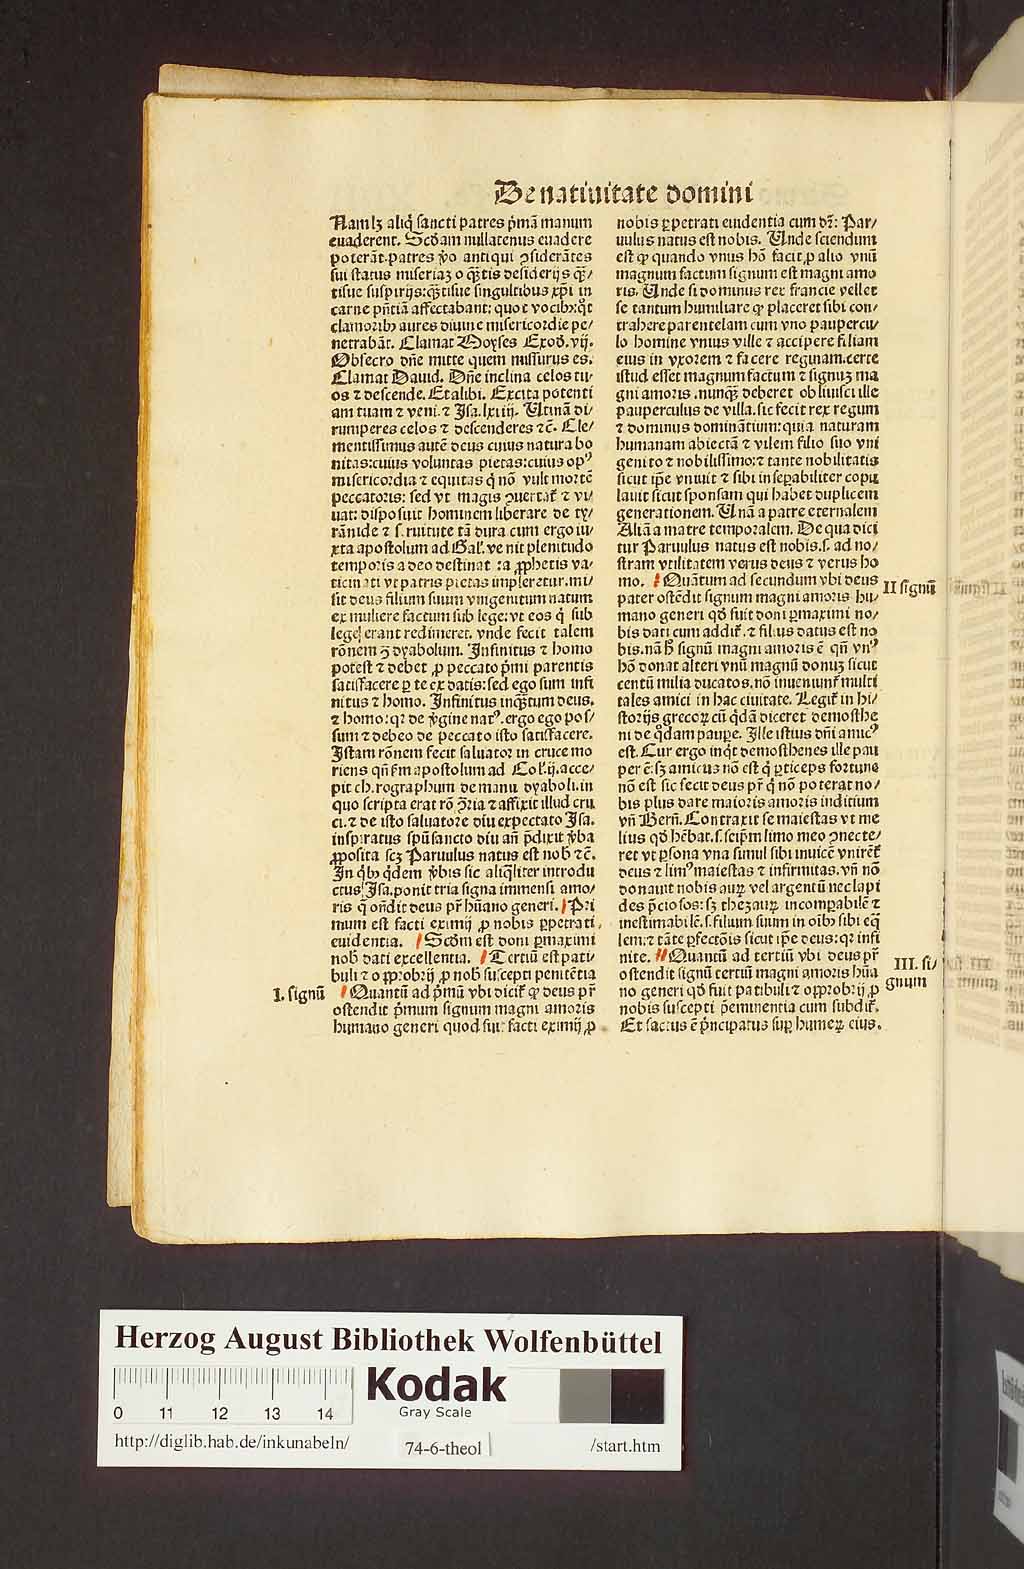 De natiuitate domini
Nam lꝫ aliq̇ sancti patres p̄mā manum
euaderent. Scḋam nullatenus euadere
poterāt. patres v̊o antiqui ꝯsiderātes
sui status miseriaꝫ o q̄ꝫtis desiderijs q̄ꝫ/
tisue suspirijs: q̄ꝫtisue singultibus xp̄i in
carne pn̄tiā affectabant: quot vocibꝰ: qͦt
clamoribꝰ aures diuine misericordie pe/
netrabāt. Clamat Moyses Exod̛. vij.
Obsecro dn̄e mitte quem missurus es.
Clamat Dauid. Dn̄e inclina celos tu/
os ⁊ descende. Et alibi. Excita potenti
am tuam ⁊ veni. ⁊ Isa. lxiiij. Utinā di/
rumperes celos ⁊ descenderes ⁊c̄. Cle/
mentissimus autē deus cuius natura bo
nitas: cuius voluntas pietas: cuius opꝰ
misericordia ⁊ equitas q̇ nō vult mortē
peccatoris: sed vt magis ꝯuertat̛ ⁊ vi/
uat: disposuit hominem liberare de ty/
rānide ⁊ s.ruitute tā dura cum ergo iu/
xta apostolum ad Gal̛. venit plenitudo
temporis a deo destinat :a ꝓphetis va/
ticinati vt patris pietas impleretur. mi/
sit deus filium suum vnigenitum natum
ex muliere factum sub lege: vt eos q̇ sub
lege erant redimeret. vnde fecit talem
rōnem ꝯ̄ dyabolum. Infinitus ⁊ homo
potest ⁊ debet ꝓ peccato p̄mi parentis
satisfacere ꝑ te ex datis: sed ego sum infi
nitus ⁊ homo. Infinitus inq̄ꝫtum deus.
⁊ homo: qꝛ de v̊gine natꝰ. ergo ego pos/
sum ⁊ debeo de peccato isto satisfacere.
Istam rōnem fecit saluator in cruce mo
riens qn̄ ẜm apostolum ad Col̛. ij. acce/
pit ch.rographum de manu dyaboli. in
quo scripta erat rō ꝯ̄ria ⁊ affixit illud cru
ci. ⁊ de isto saluatore diu expectato Isa.
inspiratus spūsancto diu an̄ p̄dixit v̊ba
ꝓposita scꝫ Paruulus natus est nob̛ ⁊c̄.
In qͥbꝰ qͥdem v̊bis sic aliq̄liter introdu
ctus Isa. ponit tria signa immensi amo/
ris q̄ on̄dit deus pr̄ hūano generi. Pri
mum est facti eximij ꝓ nobis ꝑpetrati
euidentia. Scḋm est doni ꝑmaximi
nob̛ dati excellentia. Tertiū est pati/
buli ⁊ opprobrij ꝓ nob̛ suscepti penitētia
Quantū ad p̄mū vbi dicit̛ ꝙ deus pr̄
ostendit p̄mum signum magni amoris
humano generi quod fuit facti eximij ꝓ
I. signū
nobis ꝑpetrati euidentia cum dr̄: Par/
uulus natus est nobis. Unde sciendum
est ꝙ quando vnus hō facit ꝓ alio vnū
magnum factum signum est magni amo
ris. Unde si dominus rex francie vellet
se tantum humiliare ꝙ placeret sibi con/
trahere parentelam cum vno paupercu/
lo homine vnius ville ⁊ accipere filiam
eius in vxorem ⁊ facere reginam. certe
istud esset magnum factum ⁊ signuꝫ ma
gni amoris .nunq̄ꝫ deberet obliuisci ille
pauperculus de villa. sic fecit rex regum
⁊ dominus dominātium: quia naturam
humanam abiectā ⁊ vilem filio suo vni
genito ⁊ nobilissimo: ⁊ tante nobilitatis
sicut ip̄e vniuit ⁊ sibi inseꝑabiliter copu
lauit sicut sponsam qui habet duplicem
generationem. Unā a patre eternalem
Aliā a matre temporalem. De qua dici
tur Paruulus natus est nobis. s. ad no/
stram vtilitatem verus deus ⁊ verus ho
mo. Quātum ad secundum vbi deus
pater ostēdit signum magni amoris hu/
mano generi qḋ fuit doni ꝑmaximi no/
bis dati cum addit̛. ⁊ filius datus est no
bis. nā h̊ signū magni amoris ē qn̄ vnꝰ
hō donat alteri vnū magnū donuꝫ sicut
centū milia ducatos. nō inueniunt̛ multi
tales amici in hac ciuitate. Legit̛ in hi/
storijs grecoꝝ cū qͥdā diceret demosthe
ni de qͦdam pauꝑe. Ille istius dn̄i amicꝰ
est. Cur ergo inqͥt demosthenes ille pau
per ē: sꝫ amicus nō est q̇ ꝑticeps fortune
nō est sic fecit deus pr̄ q̇ nō poterat no/
bis plus dare maioris amoris inditium
vn̄ Bern̄. Contraxit se maiestas vt me
lius qḋ hēbat. s. seip̄m limo meo ꝯnecte/
ret vt ꝑsona vna simul sibi inuicē vniret̛
deus ⁊ limꝰ maiestas ⁊ infirmitas. vn̄ nō
donauit nobis auꝝ vel argentū nec lapi
des p̄ciosos: sꝫ thezauꝝ incomꝑabilē ⁊
inestimabilē. s. filium suum in oībꝰ sibi eq̄
lem: ⁊ tāte ꝑfectōis sicut ip̄e deus: qꝛ infi
nite. Quantū ad tertiū vbi deus pr̄
ostendit signū tertiū magni amoris hūa
no generi qḋ fuit patibuli ⁊ opprobrij ꝓ
nobis suscepti p̄eminentia cum subdit̛.
Et factus ē p̄ncipatus suꝑ humeꝝ eius.
II signū
III. si/
gnum
Herzog August Bibliothek Wolfenbüttel
0 11 12 13 14
Kodak
Gray Scale
http://diglib.hab.de/inkunabeln/
74-6-theol
/start.htm